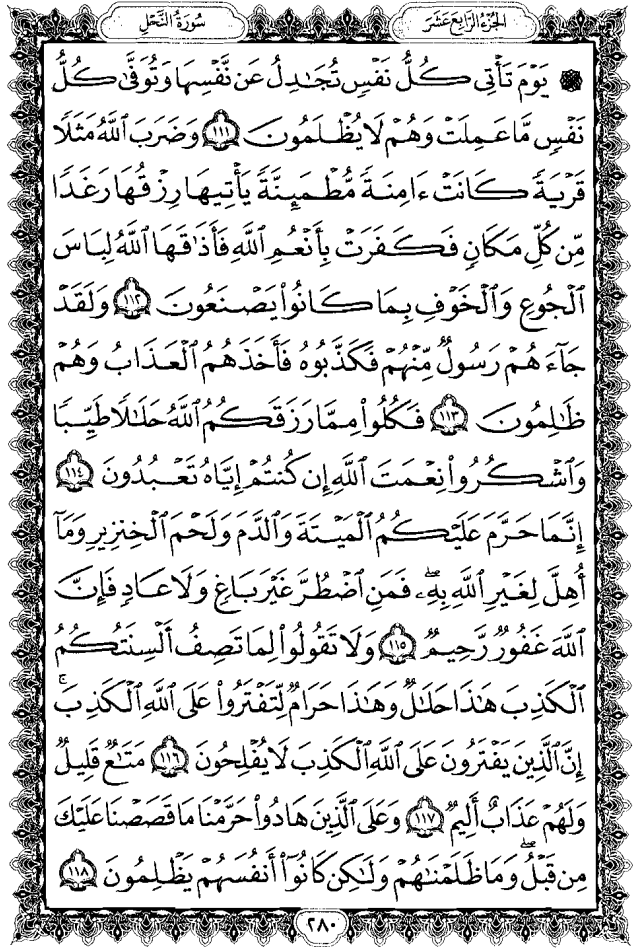 الجزء الرابع عشر
سورة النحل
۞ يَوْمَ تَأْتِى كُلُّ نَفْسٍ تُجَٰدِلُ عَن نَّفْسِهَا وَتُوَفَّىٰ كُلُّ
نَفْسٍ مَّا عَمِلَتْ وَهُمْ لَا يُظْلَمُونَ ١١١ وَضَرَبَ ٱللَّهُ مَثَلًا
قَرْيَةً كَانَتْ ءَامِنَةً مُّطْمَئِنَّةً يَأْتِيهَا رِزْقُهَا رَغَدًا
مِّن كُلِّ مَكَانٍ فَكَفَرَتْ بِأَنْعُمِ ٱللَّهِ فَأَذَٰقَهَا ٱللَّهُ لِبَاسَ
ٱلْجُوعِ وَٱلْخَوْفِ بِمَا كَانُوا۟ يَصْنَعُونَ ١١٢ وَلَقَدْ
جَآءَهُمْ رَسُولٌ مِّنْهُمْ فَكَذَّبُوهُ فَأَخَذَهُمُ ٱلْعَذَابُ وَهُمْ
ظَٰلِمُونَ ١١٣ فَكُلُوا۟ مِمَّا رَزَقَكُمُ ٱللَّهُ حَلَٰلًا طَيِّبًا
وَٱشْكُرُوا۟ نِعْمَتَ ٱللَّهِ إِن كُنتُمْ إِيَّاهُ تَعْبُدُونَ ١١٤
إِنَّمَا حَرَّمَ عَلَيْكُمُ ٱلْمَيْتَةَ وَٱلدَّمَ وَلَحْمَ ٱلْخِنزِيرِ وَمَآ
أُهِلَّ لِغَيْرِ ٱللَّهِ بِهِۦ ۖ فَمَنِ ٱضْطُرَّ غَيْرَ بَاغٍ وَلَا عَادٍ فَإِنَّ
ٱللَّهَ غَفُورٌ رَّحِيمٌ ١١٥ وَلَا تَقُولُوا۟ لِمَا تَصِفُ أَلْسِنَتُكُمُ
ٱلْكَذِبَ هَٰذَا حَلَٰلٌ وَهَٰذَا حَرَامٌ لِّتَفْتَرُوا۟ عَلَى ٱللَّهِ ٱلْكَذِبَ ۚ
إِنَّ ٱلَّذِينَ يَفْتَرُونَ عَلَى ٱللَّهِ ٱلْكَذِبَ لَا يُفْلِحُونَ ١١٦ مَتَٰعٌ قَلِيلٌ
وَلَهُمْ عَذَابٌ أَلِيمٌ ١١٧ وَعَلَى ٱلَّذِينَ هَادُوا۟ حَرَّمْنَا مَا قَصَصْنَا عَلَيْكَ
مِن قَبْلُ ۖ وَمَا ظَلَمْنَٰهُمْ وَلَٰكِن كَانُوٓا۟ أَنفُسَهُمْ يَظْلِمُونَ ١١٨
٢٨٠